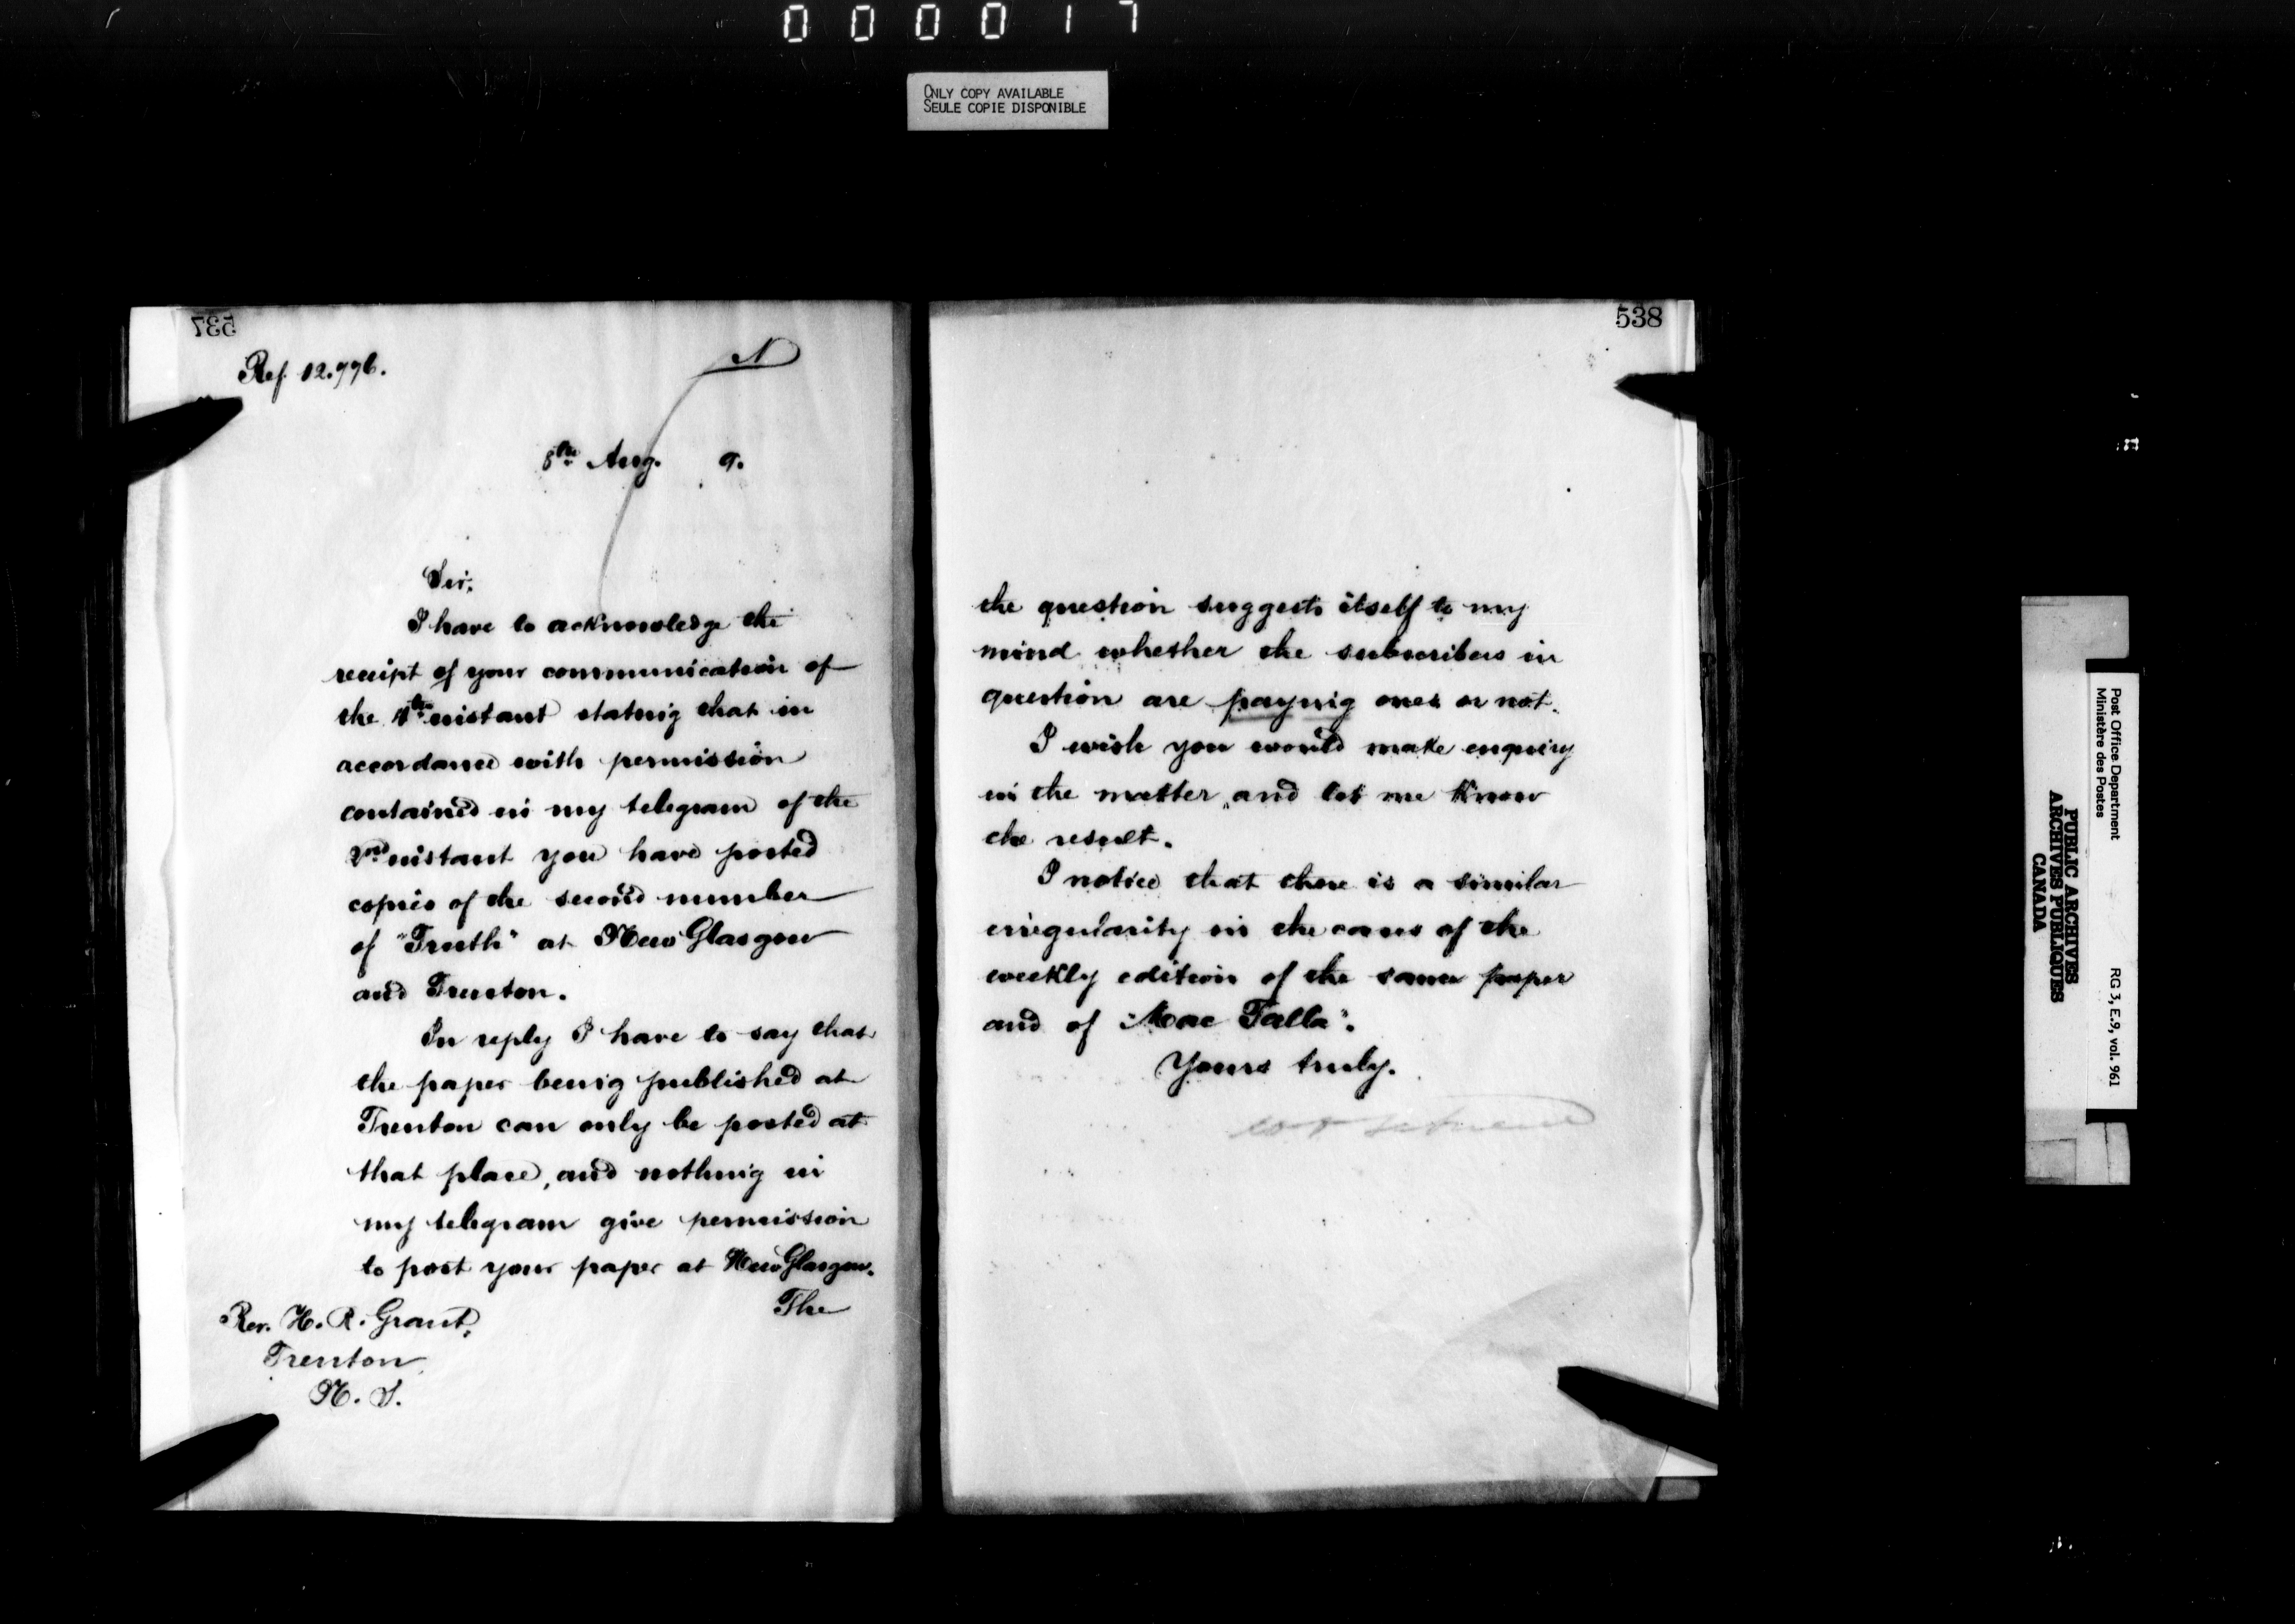 000017
ONLY COPY AVAILABLE
SEULE COPIE DISPONIBLE
537
Ref. 12.996.
N
8th Aug. 9.
Sir,
I have to acknowledge the
receipt of your communication of
the 4th instant stating that in
accordance with permission
contained in my telegram of the
2nd instant you have posted
copies of the second number
of "Truth" at New Glasgow
and Trenton.
In reply I have to say that
the paper being published at
Trenton can only be posted at
that place, and nothing in
my telegram give permission
to post your paper at New Glasgow.
The
Rev. H. R. Grant,
Trenton,
N. S.
538
the question suggests itself to my
mind whether the subscribers in
question are paying ones or not.
I wish you would make enquiry
in the matter, and let me know
the result.
I notice that there is a similar
irregularity in the cases of the
weekly edition of the same paper
and of "Mac Talla".
Yours truly.
Post Office Department
Ministère des Postes
RG 3, E.9, vol. 961
PUBLIC ARCHIVES
ARCHIVES PUBLIQUES
CANADA